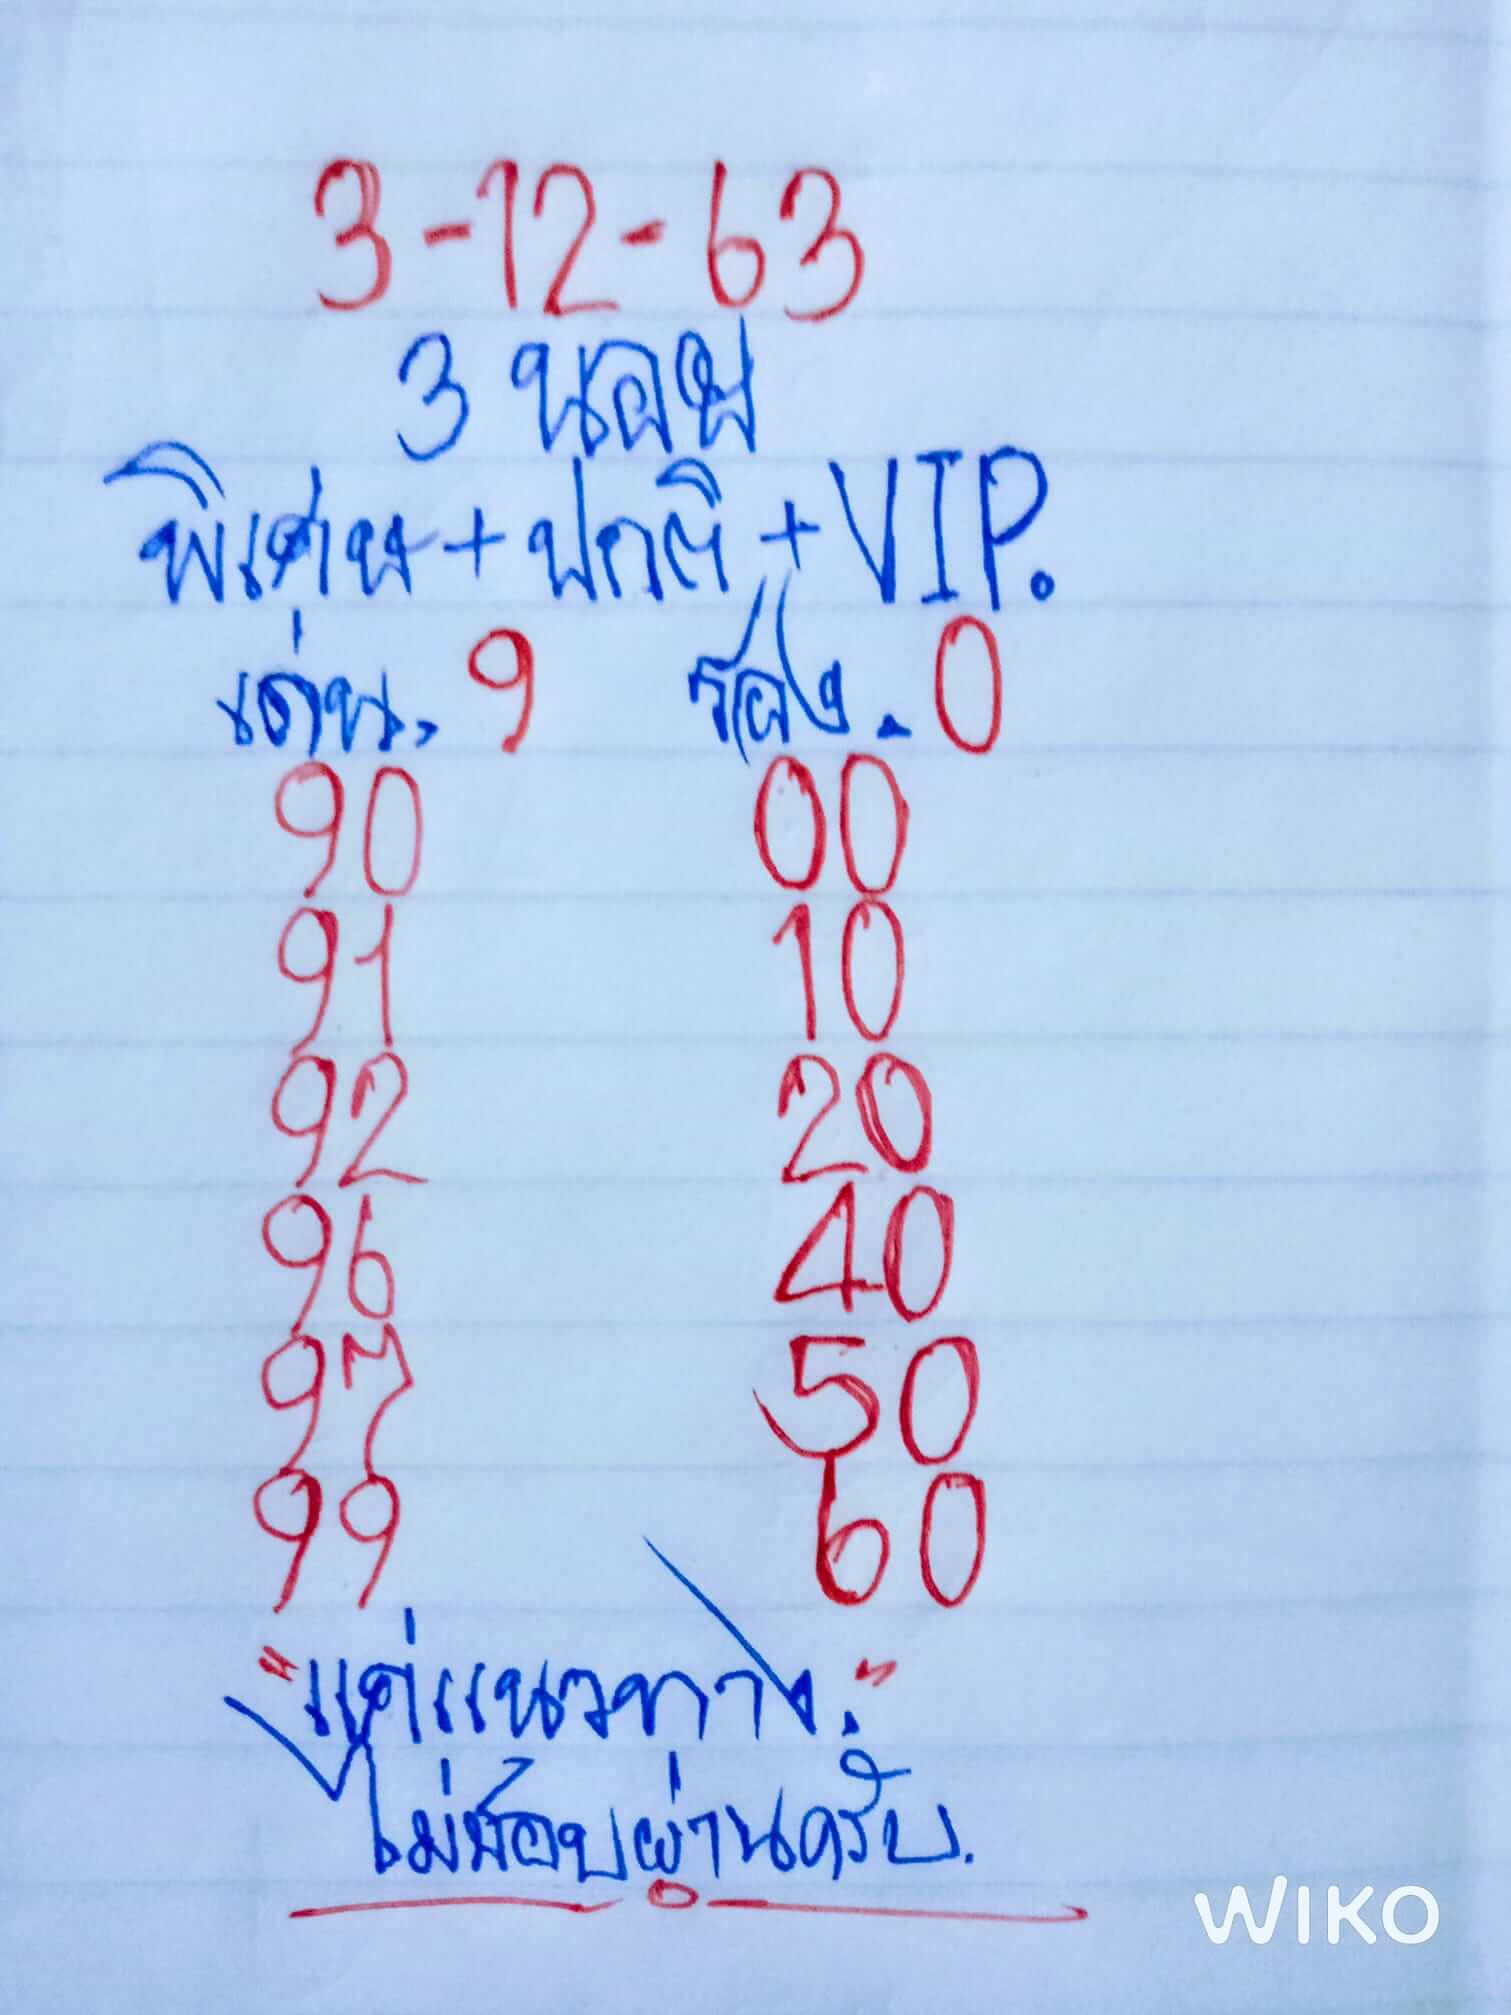 3-12-63
3 นอย
พิเศษ+ปกติ+VIP.
เด่น. 9 รอง. 0
90 00
91 10
92 20
96 40
97 50
99 60
"แค่แนวทาง."
ไม่ชอบผ่านครับ.
WIKO